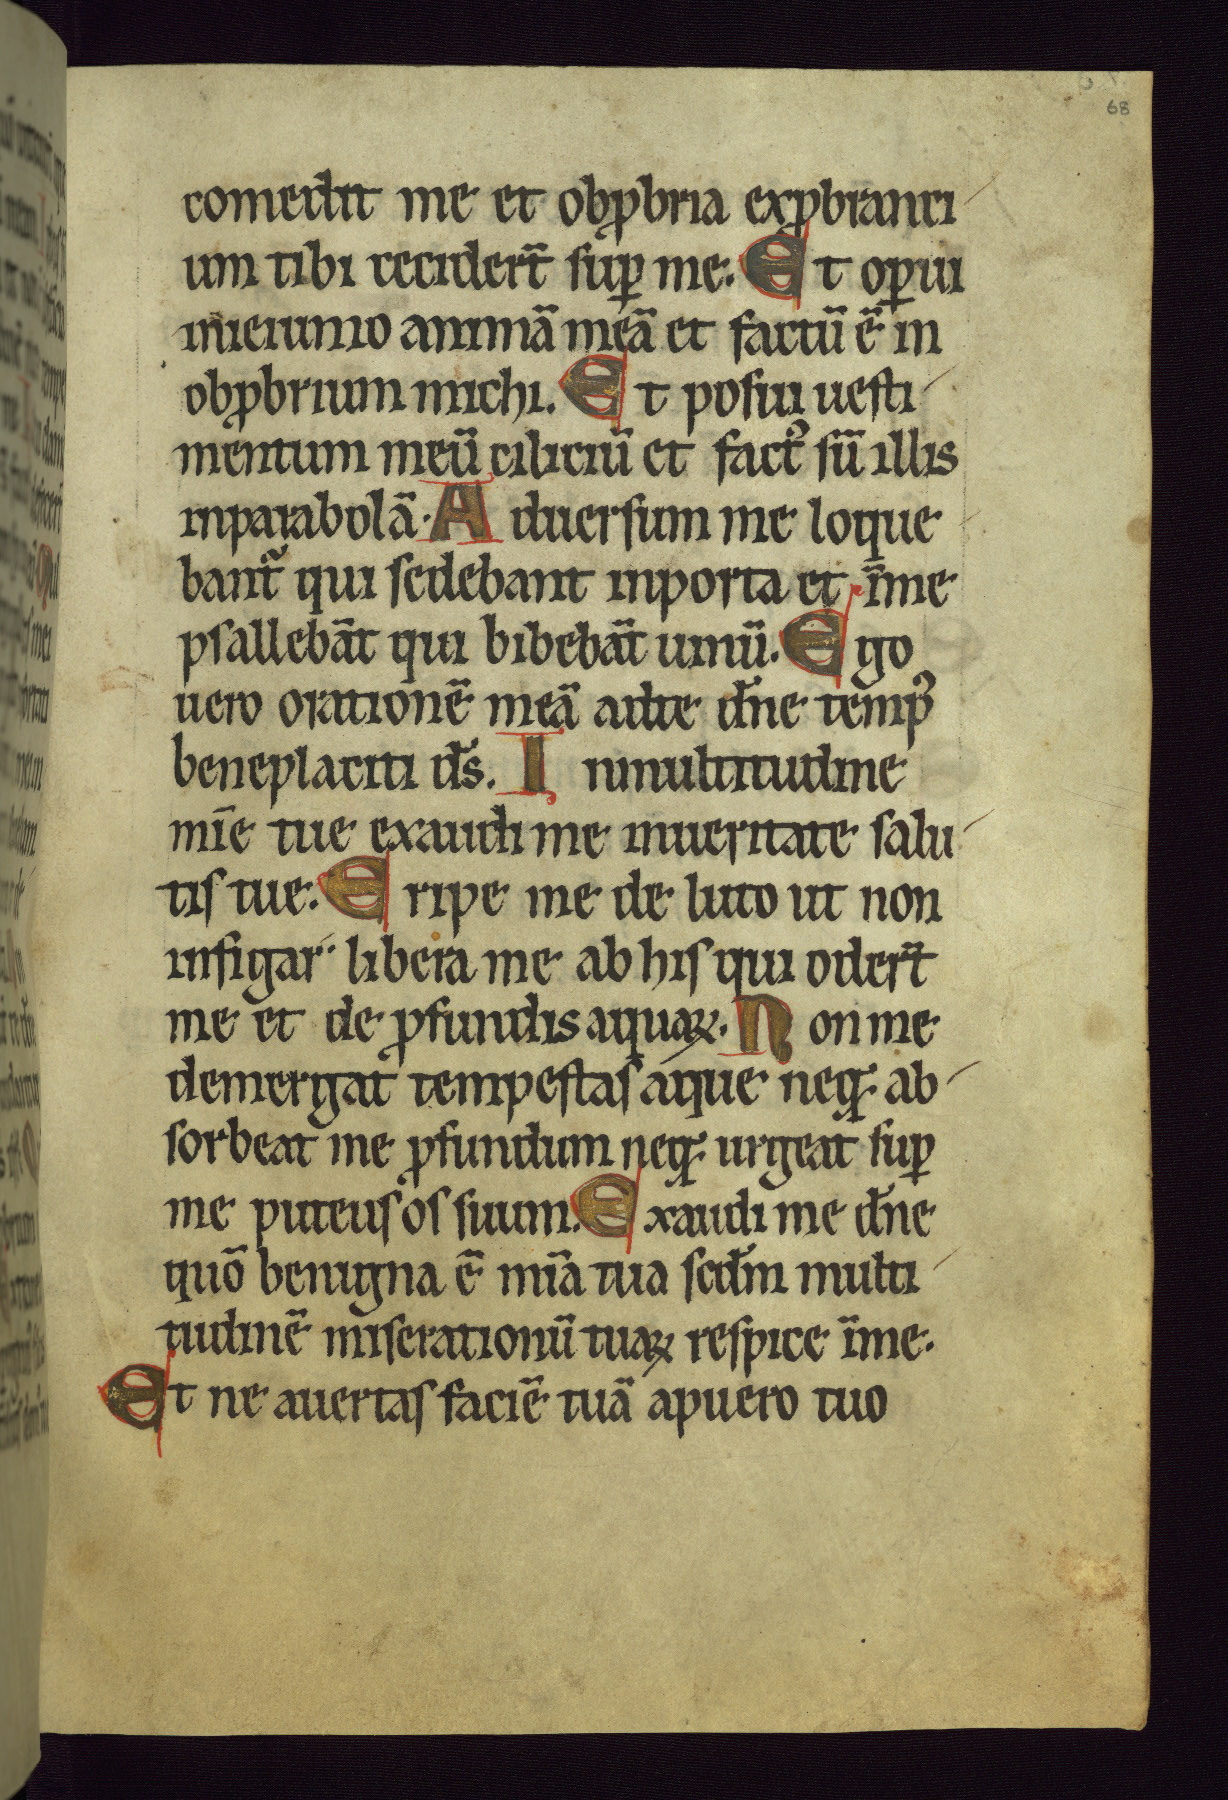 68
comedit me et obꝓbria exꝓbranti
um tibi cecider̄t suꝑ me. Et oꝑui
inieiunio animā meā et factū ē in
obꝓbrium michi. Et posui uesti
mentum meū ciliciū et factꝰ sū illis
inparabolā. Aduersum me loque
bant᷑ qui sedebant inporta et īme
psallebāt qui bibebāt uinū. Ego
uero orationē meā adte dn̄e tempꝰ
beneplaciti ds̄. Inmultitudine
mīe tue exaudi me inueritate salu
tis tue. Eripe me de luto ut non
infigar libera me ab his qui oder̄t
me et de ꝓfundis aquaꝝ. Non me
demergat tempestas aque neqꝫ ab
sorbeat me ꝓfundum neqꝫ urgeat suꝑ
me puteus os suum. Exaudi me dn̄e
quō benigna ē mīa tua scdm̄ multi
tudinē miserationū tuaꝝ respice īme.
Et ne auertas faciē tuā apuero tuo